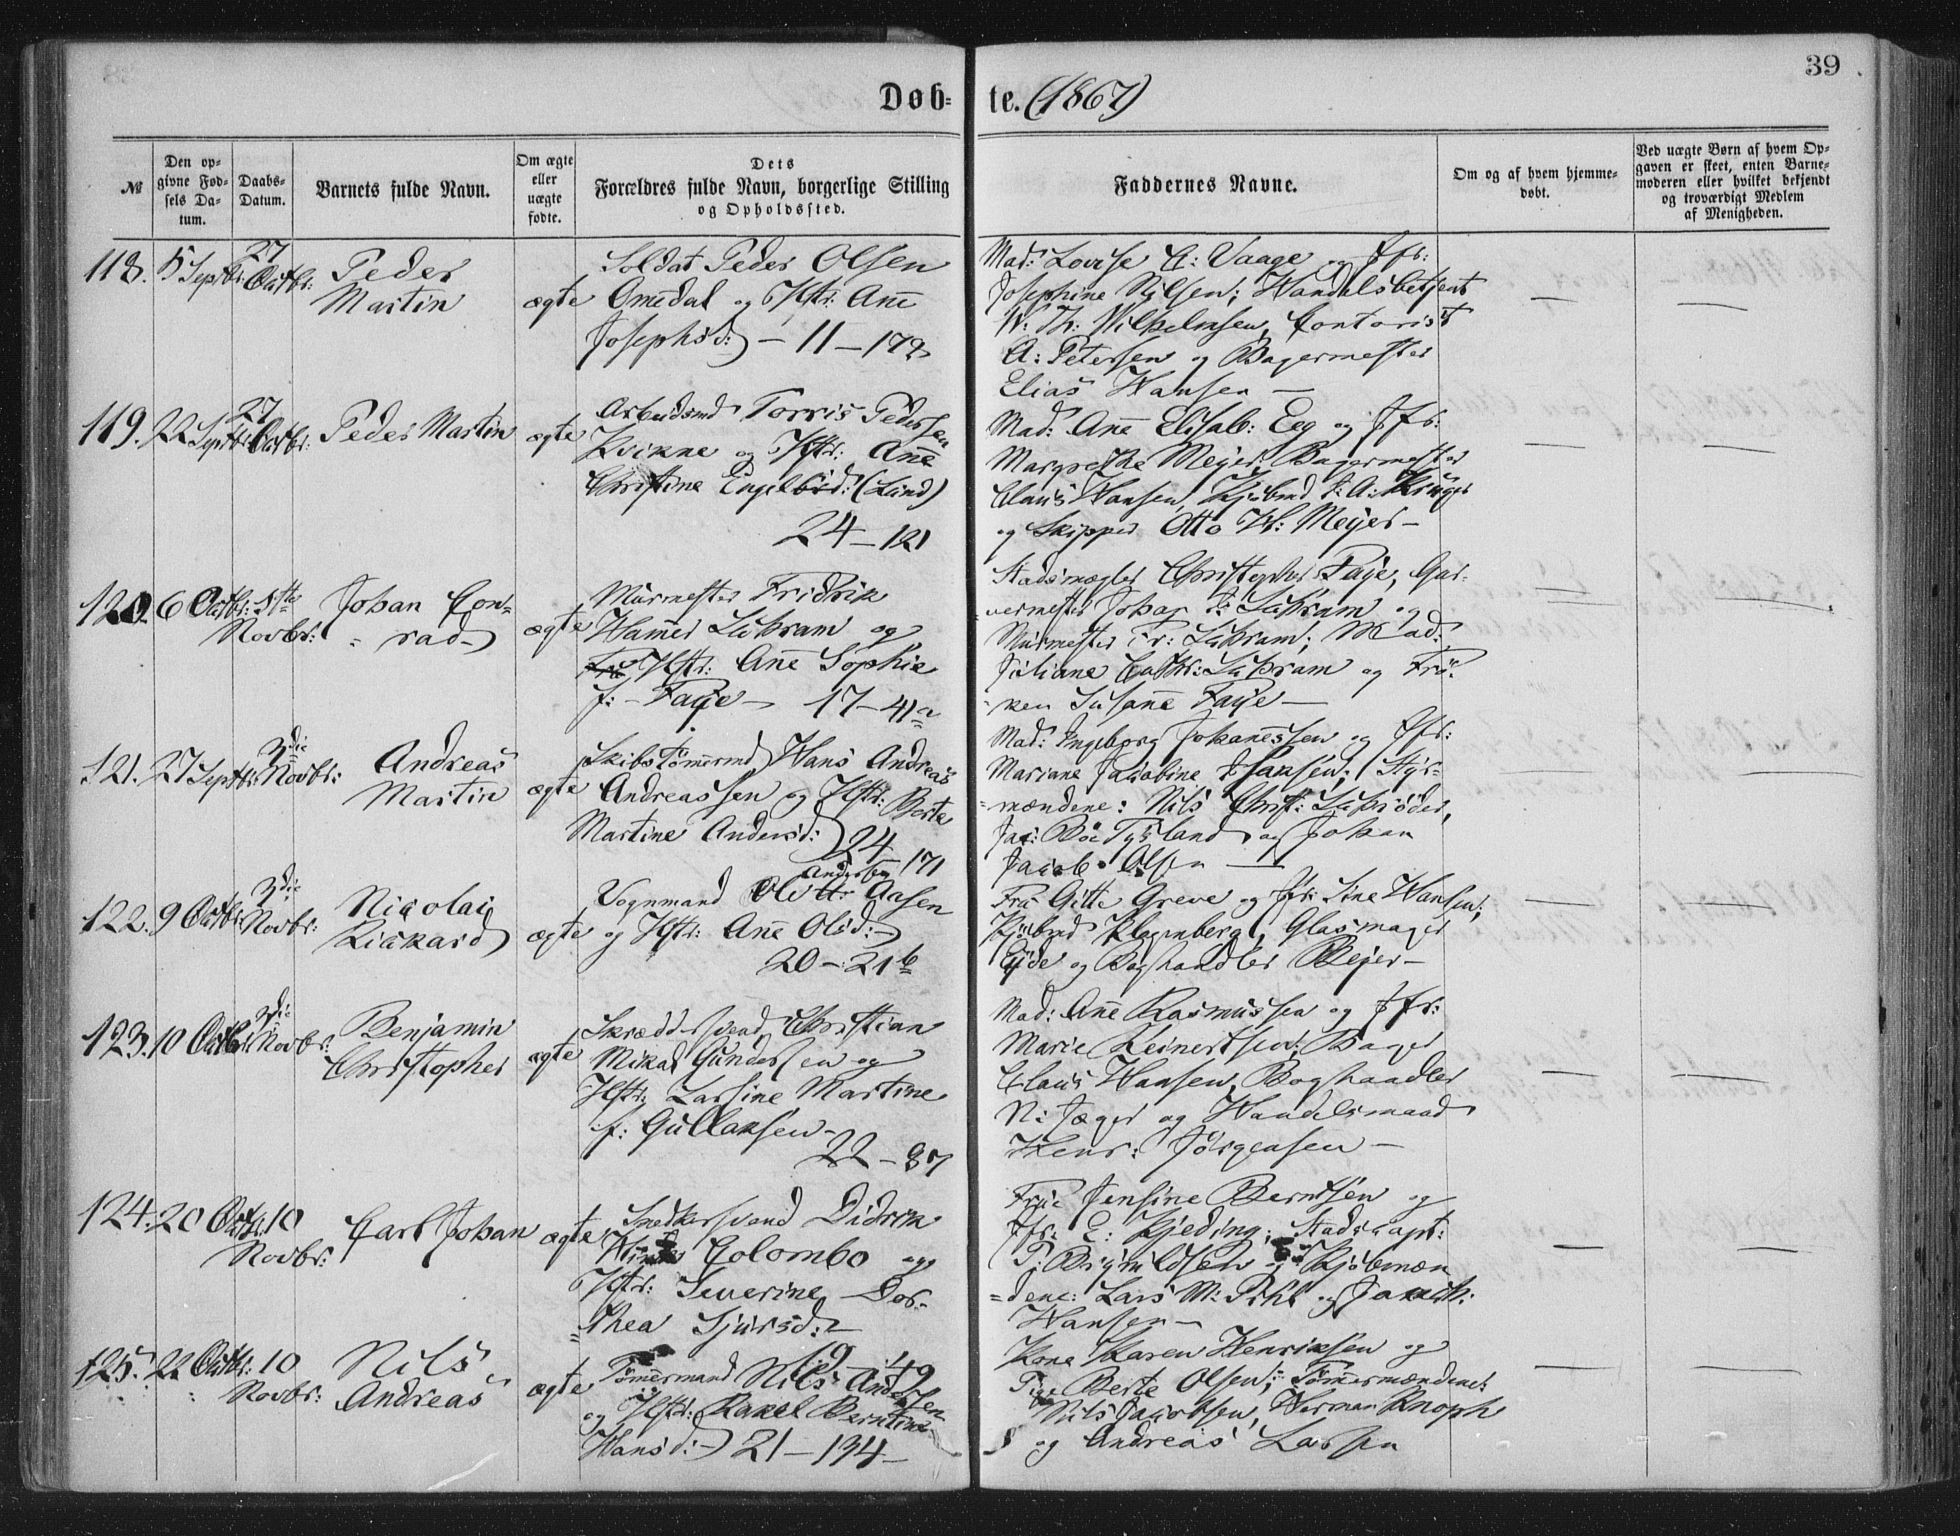 39
Døb= te. (1867)
№
Den op-
givne Fød-
sels Da-
tum.
Daabs-
Datum.
Barnets fulde Navn.
Om ægte
eller
uægte
fødte.
Dets
Forældres fulde Navn, borgerlige Stilling
og Opholdssted.
Faddernes Navne.
Om og af hvem hjemme-
døbt.
Ved uægte Børn af hvem Op-
gaven er skeet, enten Barne-
moderen eller hvilket bekjendt
og troværdigt Medlem
af Menigheden.
118. 5 Septbr: 27 Octbr:
Peder
Martin
ægte
Soldat Peder Olsen
Omdal og Hstr: Ane
Josephsd: – 11 – 172
Mad: Lovise E: Vaage og Jfr:
Josephine Nilsen; Handelsbetjent
W: Th: Wilhelmsen, Contorist
A: Petersen og Bagermester
Elias Hansen –
119. 22 Septbr: 27 Octbr:
Peder Martin
ægte
Arbeidsmd Torris Pedersen
Kvikne og Hstr: Ane
Christine Engelbrd: (Lund)
24 – 121
Mad: Ane Elisab: Eeg og Jfr:
Margrethe Meyer, Bagermester
Claus Hansen, Kjøbmd J: A: Krüger
og Skipper Otto W: Meyer –
120. 6 Octbr: 1ste Novbr:
Johan Con-
rad
ægte
Murmester Fridrik
Hamer Lühram og
Hstr: Ane Sophie
f: – Faye – 17 – 41a
Stadsmægler Christopher Faye, Gar-
vermester Johan F: Lühram og
Murmester Fr: Lühram; Mad:
Juliane Cathr: Lühram og Frø-
ken Susane Faye –
121. 27 Septbr: 3die Novbr:
Andreas
Martin
ægte
Skibstømermd Hans Andreas
Andreassen og Hstr: Berte
Martine Andersd:
24 – 171
Mad: Ingeborg Johanessen og Jfr:
Mariane Jacobine Hansen; Styr-
=mændene: Nils Christ: Schrøder,
Jac: Bøe Tysland og Johan
Jacob Olsen –
122. 9 Octbr: 3die Novbr:
Nicolai
Rickard
ægte
Andersen
Vognmand Ole Aasen
og Hstr: Ane Olsd:
20 – 21b
Fru Gitte Greve og Jfr: Sine Hansen;
Kjøbmd Klagenberg, Glasmager
Eyde og Boghandler Beyer –
123. 10 Octbr: 3die Novbr:
Benjamin
Christopher
ægte
Skræddersvend Christian
Mikal Gundersen og
Hstr: Larsine Martine
f: Gullaksen –
22 – 87
Mad: Ane Rasmussen og Jfr:
Marie Reinertsen; Bager
Claus Hansen, Boghandler
N: Jæger og Handelsmand
Henr: Jørgensen –
124. 20 Octbr: 10 Novbr:
Carl Johan
ægte
Snedkersvend Didrik
Colombo og
Hstr: Severine Dor-
=thea Sjursd:
19 – 49
Frue Jensine Berntsen og
Jfr: E: Kjeding; Stadscapt:
P: Brynildsen og Kjøbmæn
=dene: Lars M: Pihl og Joach:
Hansen –
125. 22 Octbr: 10 Novbr:
Nils
Andreas
ægte
Tømermand Nils Andersen
og Hstr: Rakel Berntine
Hansd: – 21 – 134 –
Kone Karen Henriksen og
Pige Berte Olsen; Tømermændene:
Nils Jacobsen, Herman Knoph
og Andreas Larsen